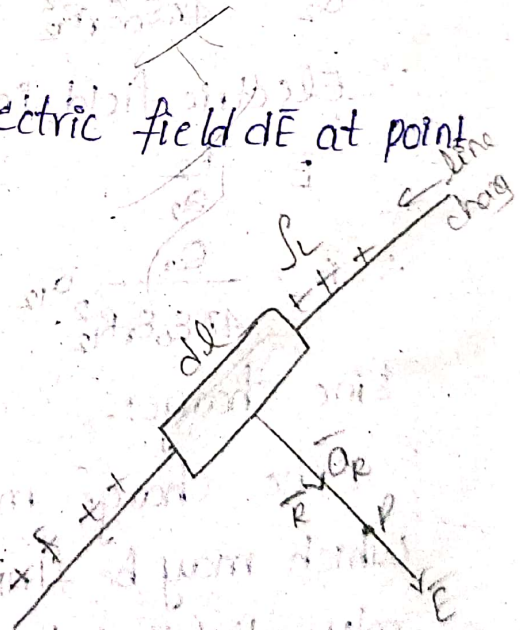 ectric field dĒ at point
line
charg
ρL
+ + +
dl
āR
R̄
P
Ē
x x x +